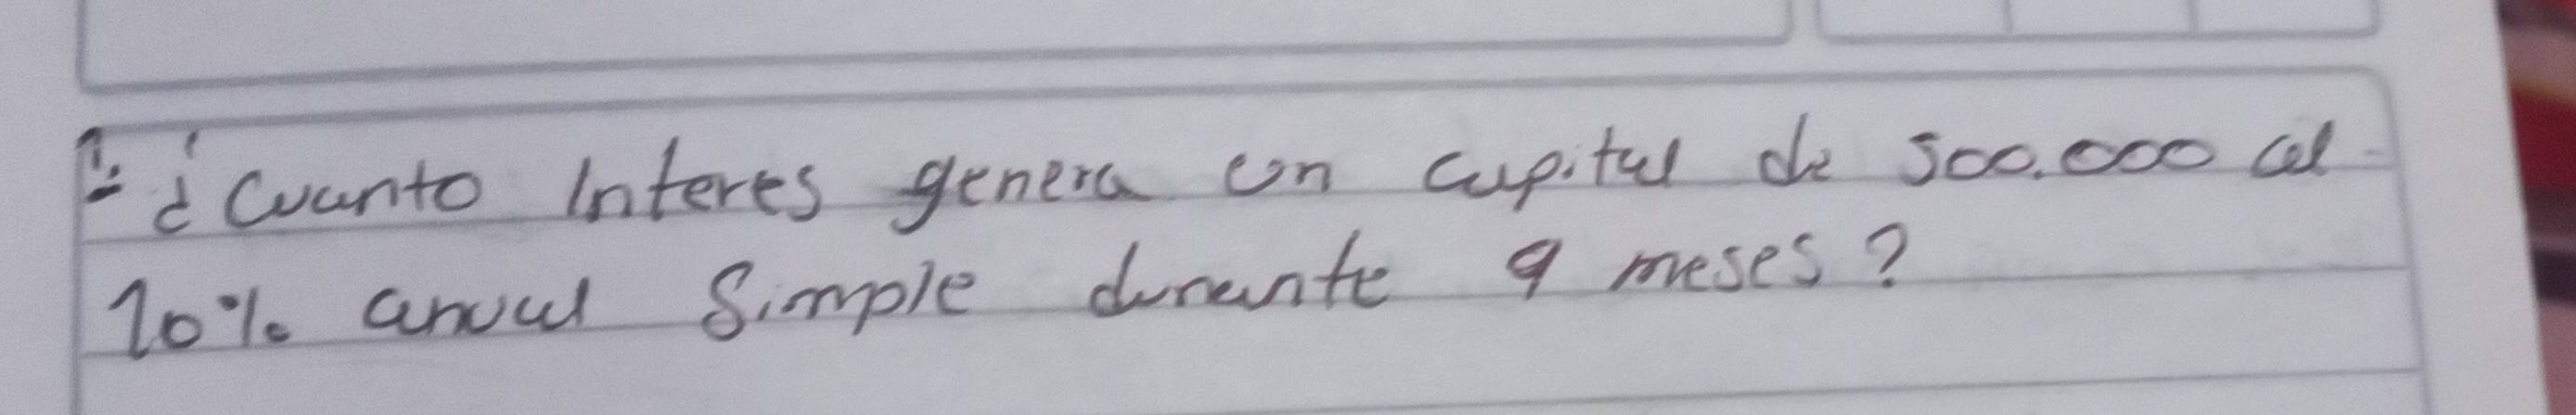 1- ¿Cuanto Interes genera un capital de 500.000 al
10% anual Simple durante 9 meses?